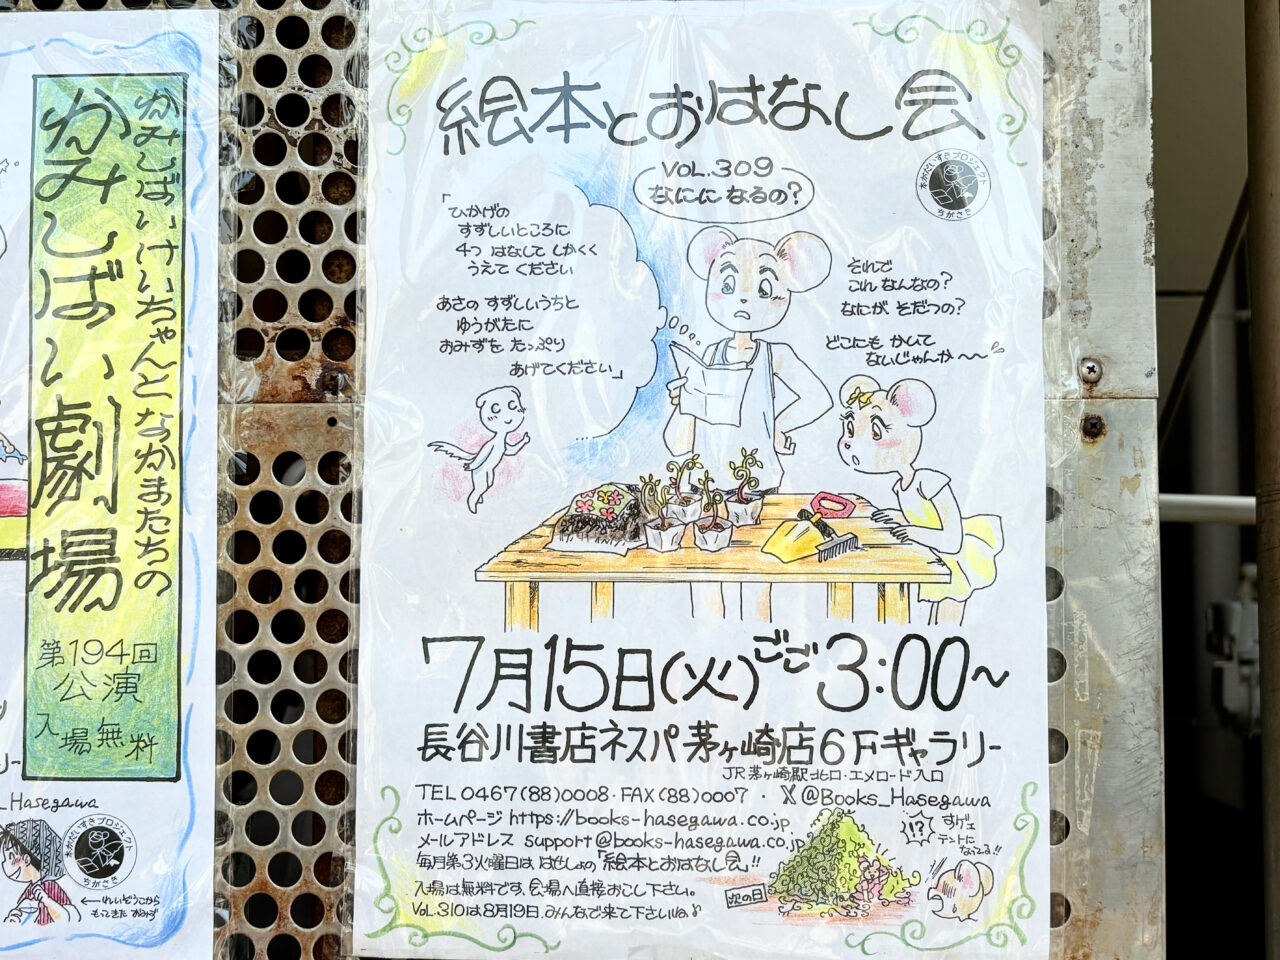 かみしばいけいちゃんとなかまたちの
かみしばい劇場
第194回
公演
入場無料
_Hasegawa
本がだいすきプロジェクト
ちがさき
絵本とおはなし会
VOL.309
なにに なるの?
本がだいすきプロジェクト
ちがさき
「ひかげの
すずしいところに
4つ はなして しかくく
うえて ください
あさの すずしいうちと
ゆうがたに
おみずを たっぷり
あげてください」
それで
これ なんなの?
なにが そだつの?
どこにも かいて
ないじゃんか〜〜
7月15日(火)ごご3:00〜
長谷川書店ネスパ茅ヶ崎店6Fギャラリー
JR茅ヶ崎駅北口・エメロード入口
TEL 0467(88)0008・FAX(88)0007・X@Books_Hasegawa
ホームページ https://books-hasegawa.co.jp
メールアドレス support@books-hasegawa.co.jp
毎月第3火曜日は はせしょの「絵本とおはなし会」!!
入場は無料です。会場へ直接おこし下さい。
VOL.310は8月19日。みんなで来て下さいね♪
次の日
!?
すげェ
テントに
なってる!!